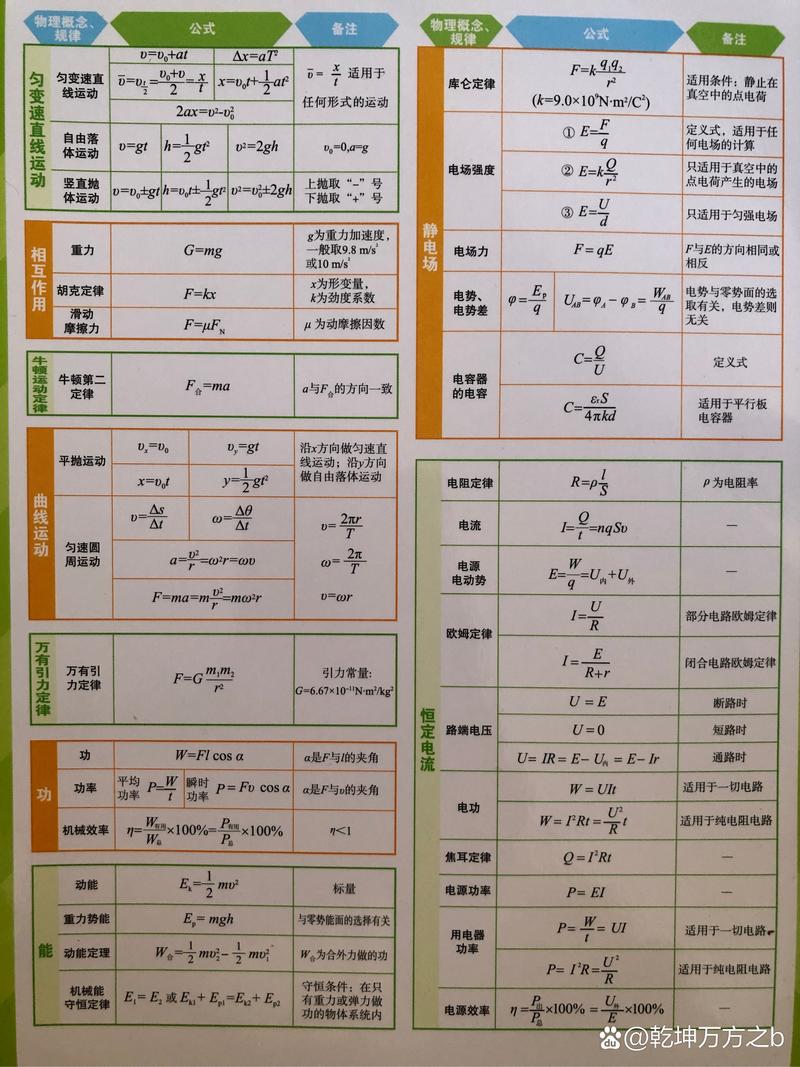 物理概念、规律 公式 备注
匀变速直线运动
匀变速直线运动
υ=υ₀+at Δx=aT²
ῡ=υ_{t/2}=(υ₀+υ)/2=x/t x=υ₀t+1/2at²
2ax=υ²-υ₀²
ῡ=x/t 适用于
任何形式的运动
自由落体运动
υ=gt h=1/2gt² υ²=2gh
υ₀=0,a=g
竖直抛体运动
υ=υ₀±gt h=υ₀t±1/2gt² υ²=υ₀²±2gh
上抛取“-”号
下抛取“+”号
相互作用
重力
G=mg
g为重力加速度,
一般取9.8 m/s²
或10 m/s²
胡克定律
F=kx
x为形变量,
k为劲度系数
滑动
摩擦力
F=μF_N
μ为动摩擦因数
牛顿运动定律
牛顿第二
定律
F合=ma
a与F合的方向一致
曲线运动
平抛运动
υₓ=υ₀ υ_y=gt
x=υ₀t y=1/2gt²
沿x方向做匀速直
线运动;沿y方向
做自由落体运动
匀速圆
周运动
υ=Δs/Δt ω=Δθ/Δt
a=υ²/r=ω²r=ωυ
F=ma=mυ²/r=mω²r
υ=2πr/T
ω=2π/T
υ=ωr
万有引力定律
万有引
力定律
F=G m₁m₂/r²
引力常量:
G=6.67×10⁻¹¹N·m²/kg²
功
功
W=Fl cos α
α是F与l的夹角
功率
平均功率 P=W/t 瞬时功率 P=Fυ cos α
α是F与υ的夹角
机械效率
η=W有用/W总×100%=P有用/P总×100%
η<1
能
动能
E_k=1/2 mυ²
标量
重力势能
E_p=mgh
与零势能面的选择有关
动能定理
W合=1/2 mυ₂²-1/2 mυ₁²
W合为合外力做的功
机械能
守恒定律
E₁=E₂ 或 E_k1+E_p1=E_k2+E_p2
守恒条件:在只
有重力或弹力做
功的物体系统内
物理概念、规律 公式 备注
静电场
库仑定律
F=k q₁q₂/r²
(k=9.0×10⁹N·m²/C²)
适用条件:静止在
真空中的点电荷
电场强度
① E=F/q
定义式,适用于任
何电场的计算
② E=kQ/r²
只适用于真空中的
点电荷产生的电场
③ E=U/d
只适用于匀强电场
电场力
F=qE
F与E的方向相同或
相反
电势、
电势差
φ=E_p/q U_AB=φ_A-φ_B=W_AB/q
电势与零势面的选
取有关,电势差则
无关
电容器
的电容
C=Q/U
定义式
C=εᵣS/4πkd
适用于平行板
电容器
恒定电流
电阻定律
R=ρ l/S
ρ为电阻率
电流
I=Q/t=nqSυ
—
电源
电动势
E=W/q=U内+U外
—
欧姆定律
I=U/R
部分电路欧姆定律
I=E/(R+r)
闭合电路欧姆定律
路端电压
U=E
断路时
U=0
短路时
U=IR=E-U内=E-Ir
通路时
电功
W=UIt
适用于一切电路
W=I²Rt=U²/R t
适用于纯电阻电路
焦耳定律
Q=I²Rt
—
电源功率
P=EI
—
用电器
功率
P=W/t=UI
适用于一切电路
P=I²R=U²/R
适用于纯电阻电路
电源效率
η=P出/P总×100%=U外/E×100%
—
Baidu @乾坤万方之b